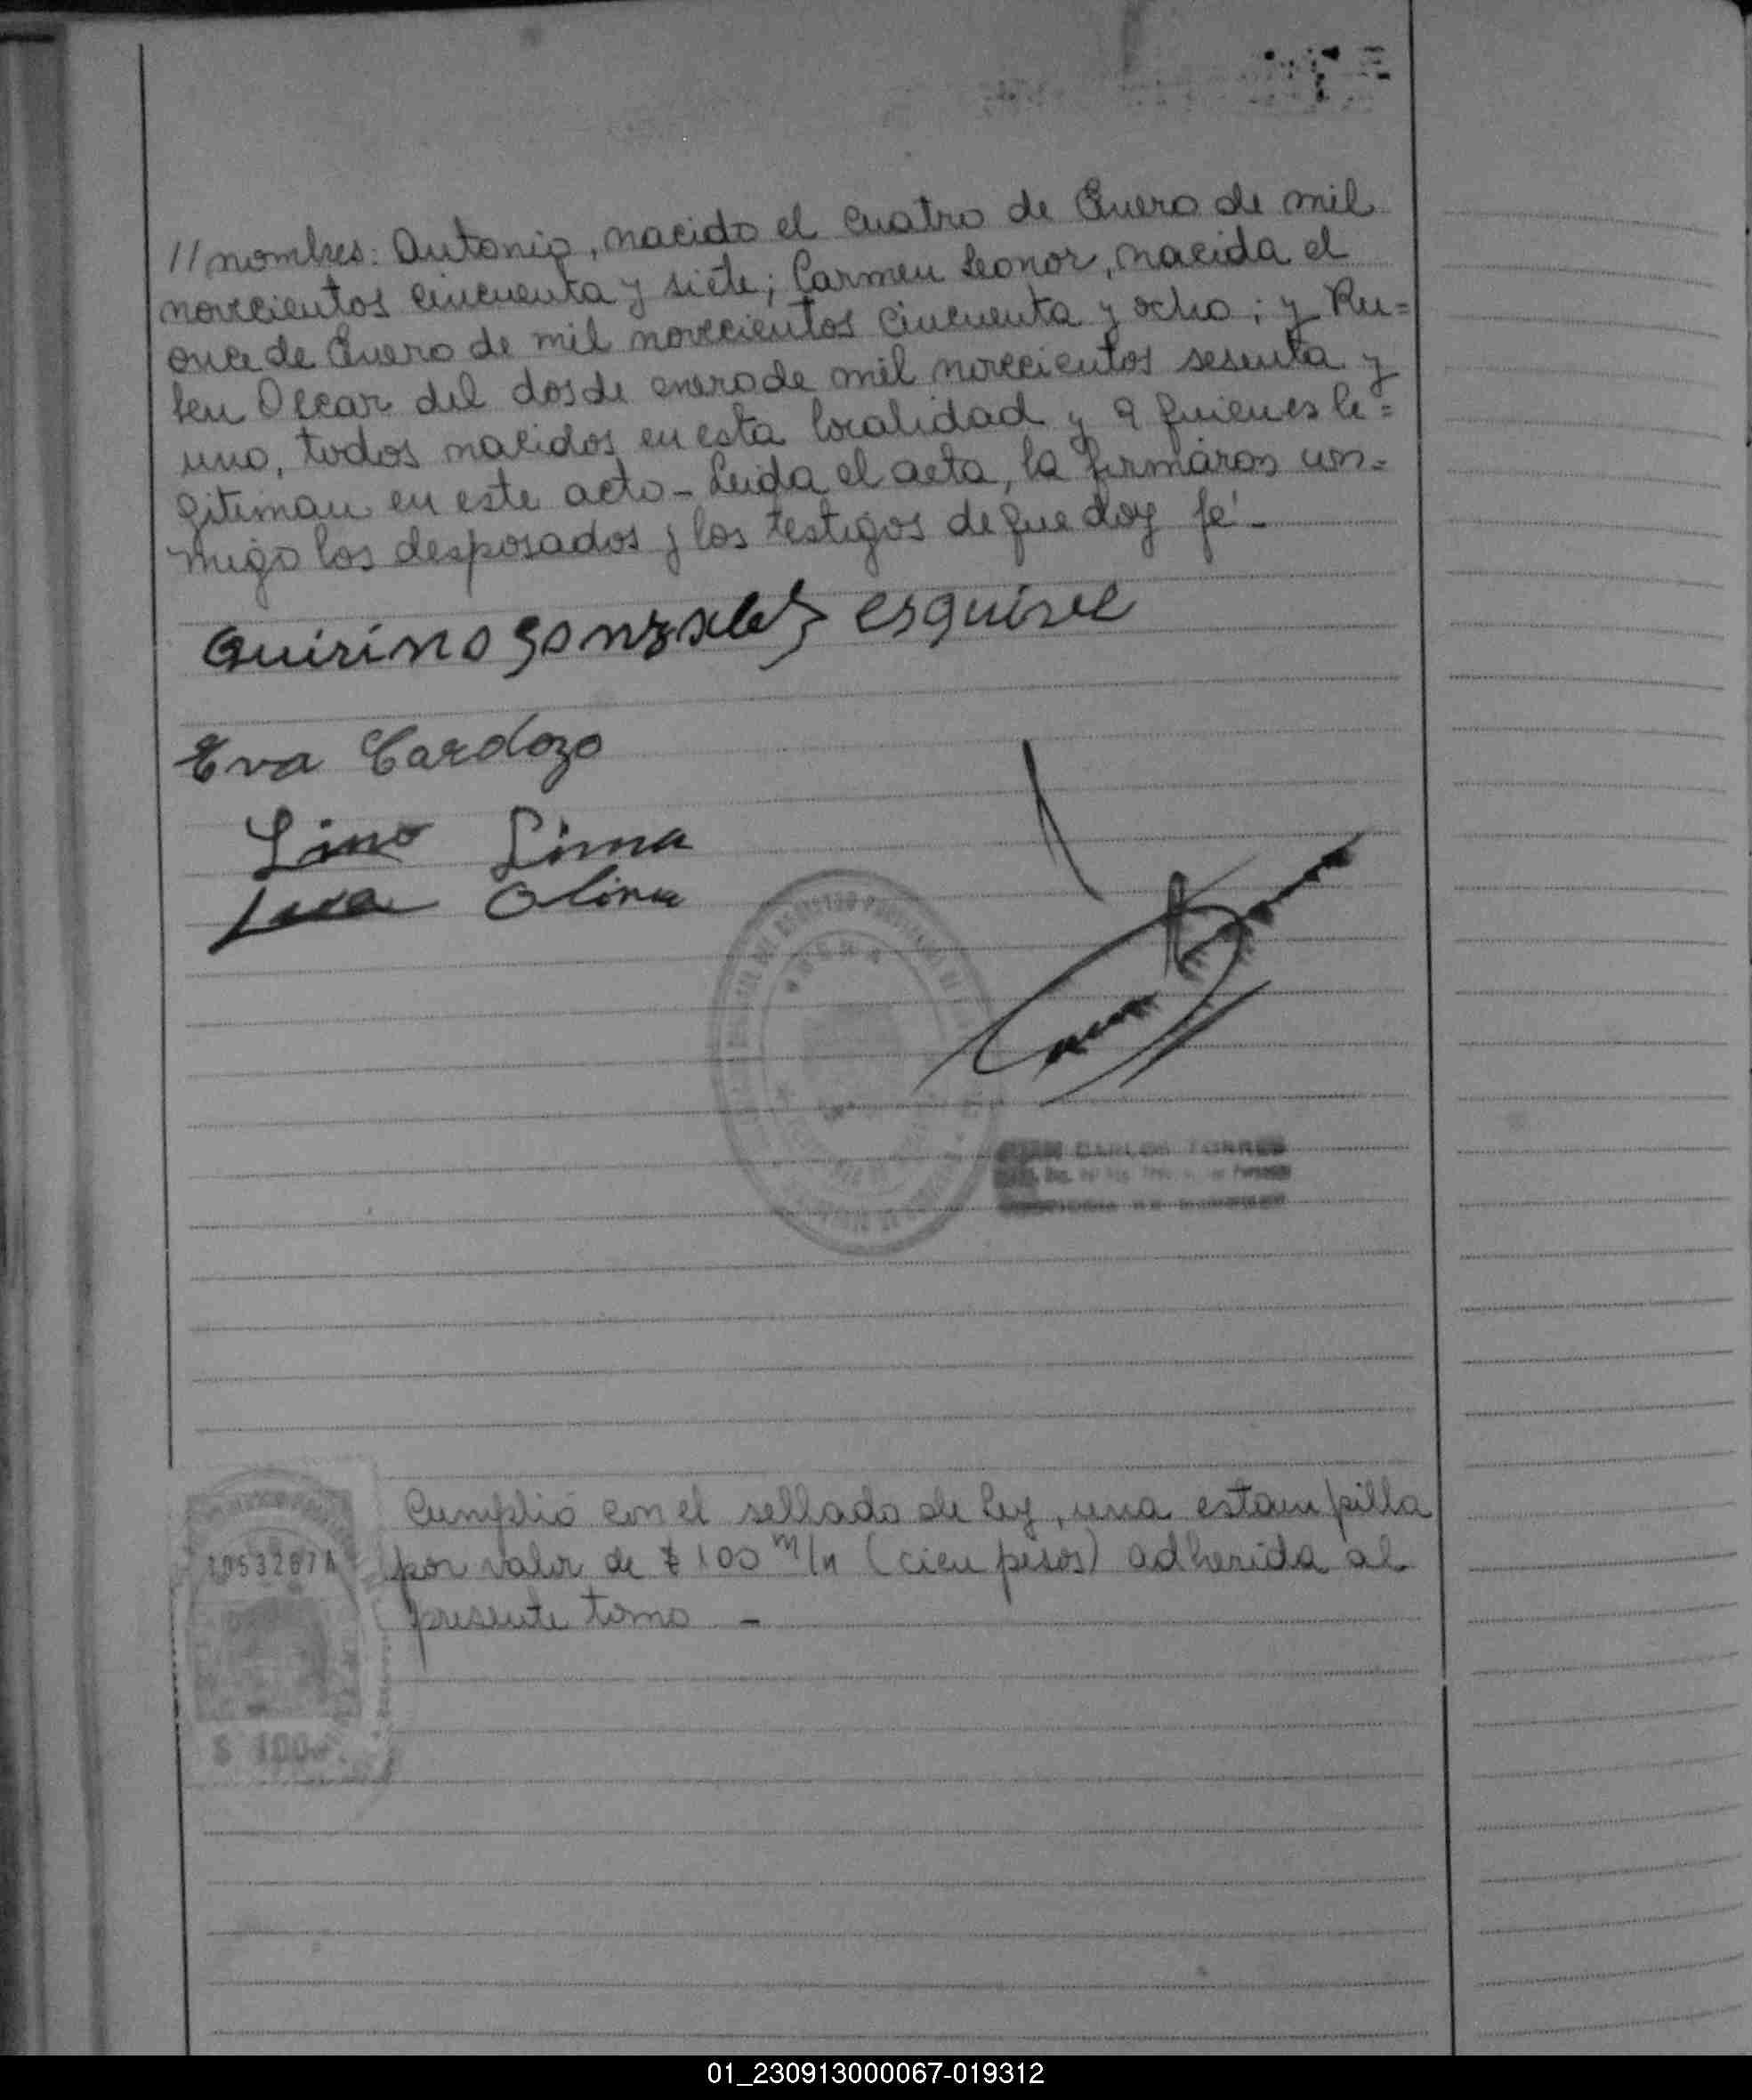 //nombres: Antonio, nacido el cuatro de Enero de mil
novecientos cincuenta y siete; Carmen Leonor, nacida el
once de Enero de mil novecientos cincuenta y ocho; y Ru=
ben Oscar del dos de enero de mil novecientos sesenta y
uno, todos nacidos en esta localidad y a quienes le=
gitiman en este acto - Leida el acta, la firmáron con=
migo los desposados y los testigos de que doy fé -
Quirino Gonzalez esquivel
Eva Cardozo
Lino Lima
Olina
CARLOS TORRES
Cumplió con el sellado de ley, una estampilla
por valor de $ 100 m/n (cien pesos) adherida al
presente tomo -
10532674
$ 100
01_230913000067-019312